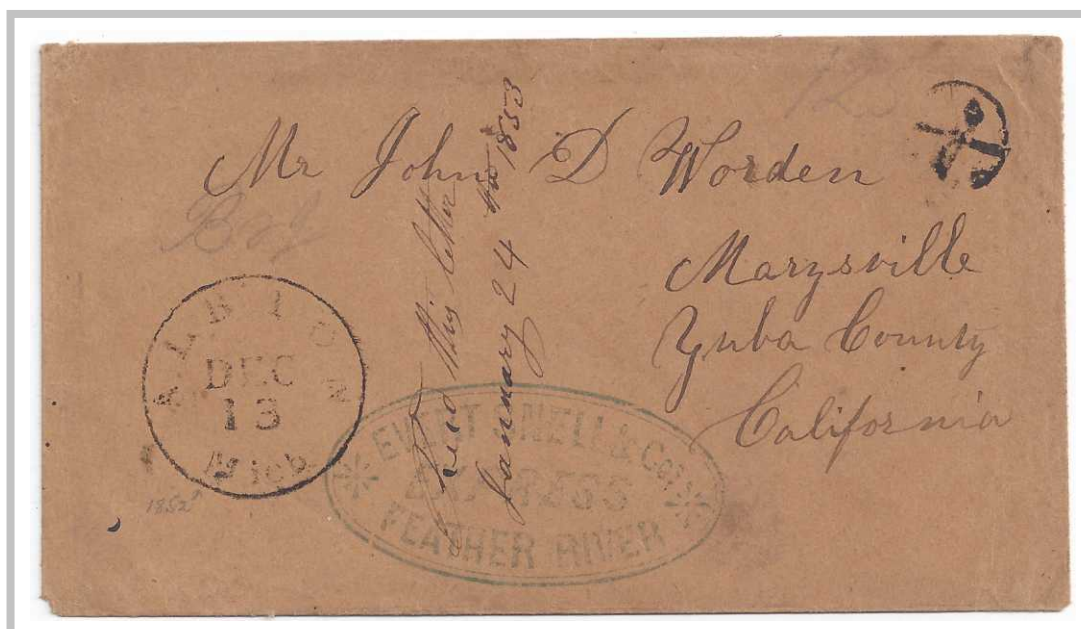 Mr John D Worden
Marysville
Yuba County
California
Recd this letter
January 24 1853
ALBION
DEC
13
Mich
1852
EVERT SNELL & Co's
EXPRESS
FEATHER RIVER